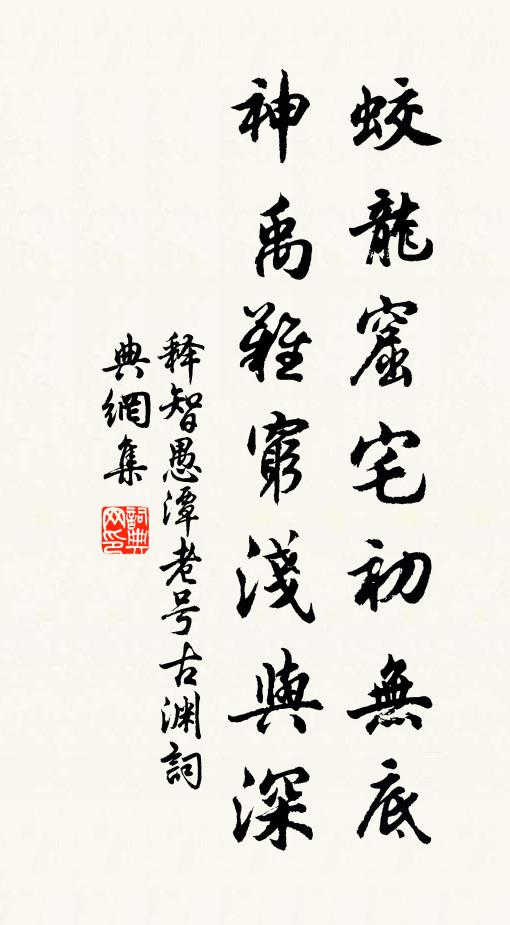 蛟龍窟宅初無底
神禹難窮淺與深
释智愚潭老号古渊詞
典網集
詞典网印